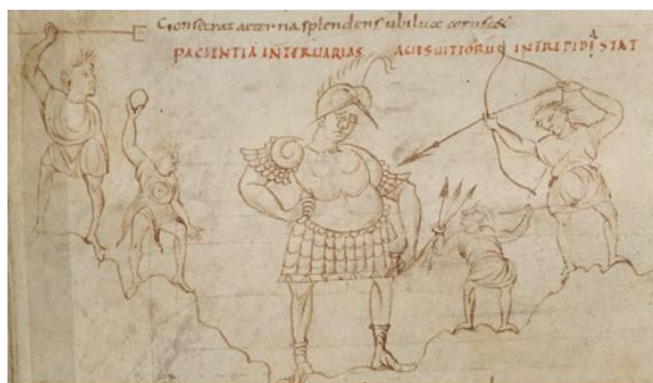 Consecrat aeterna splendens ubi luce coruscat
PACIENTIA INTERVARIAS ACIES VITIORUM INTREPIDA STAT